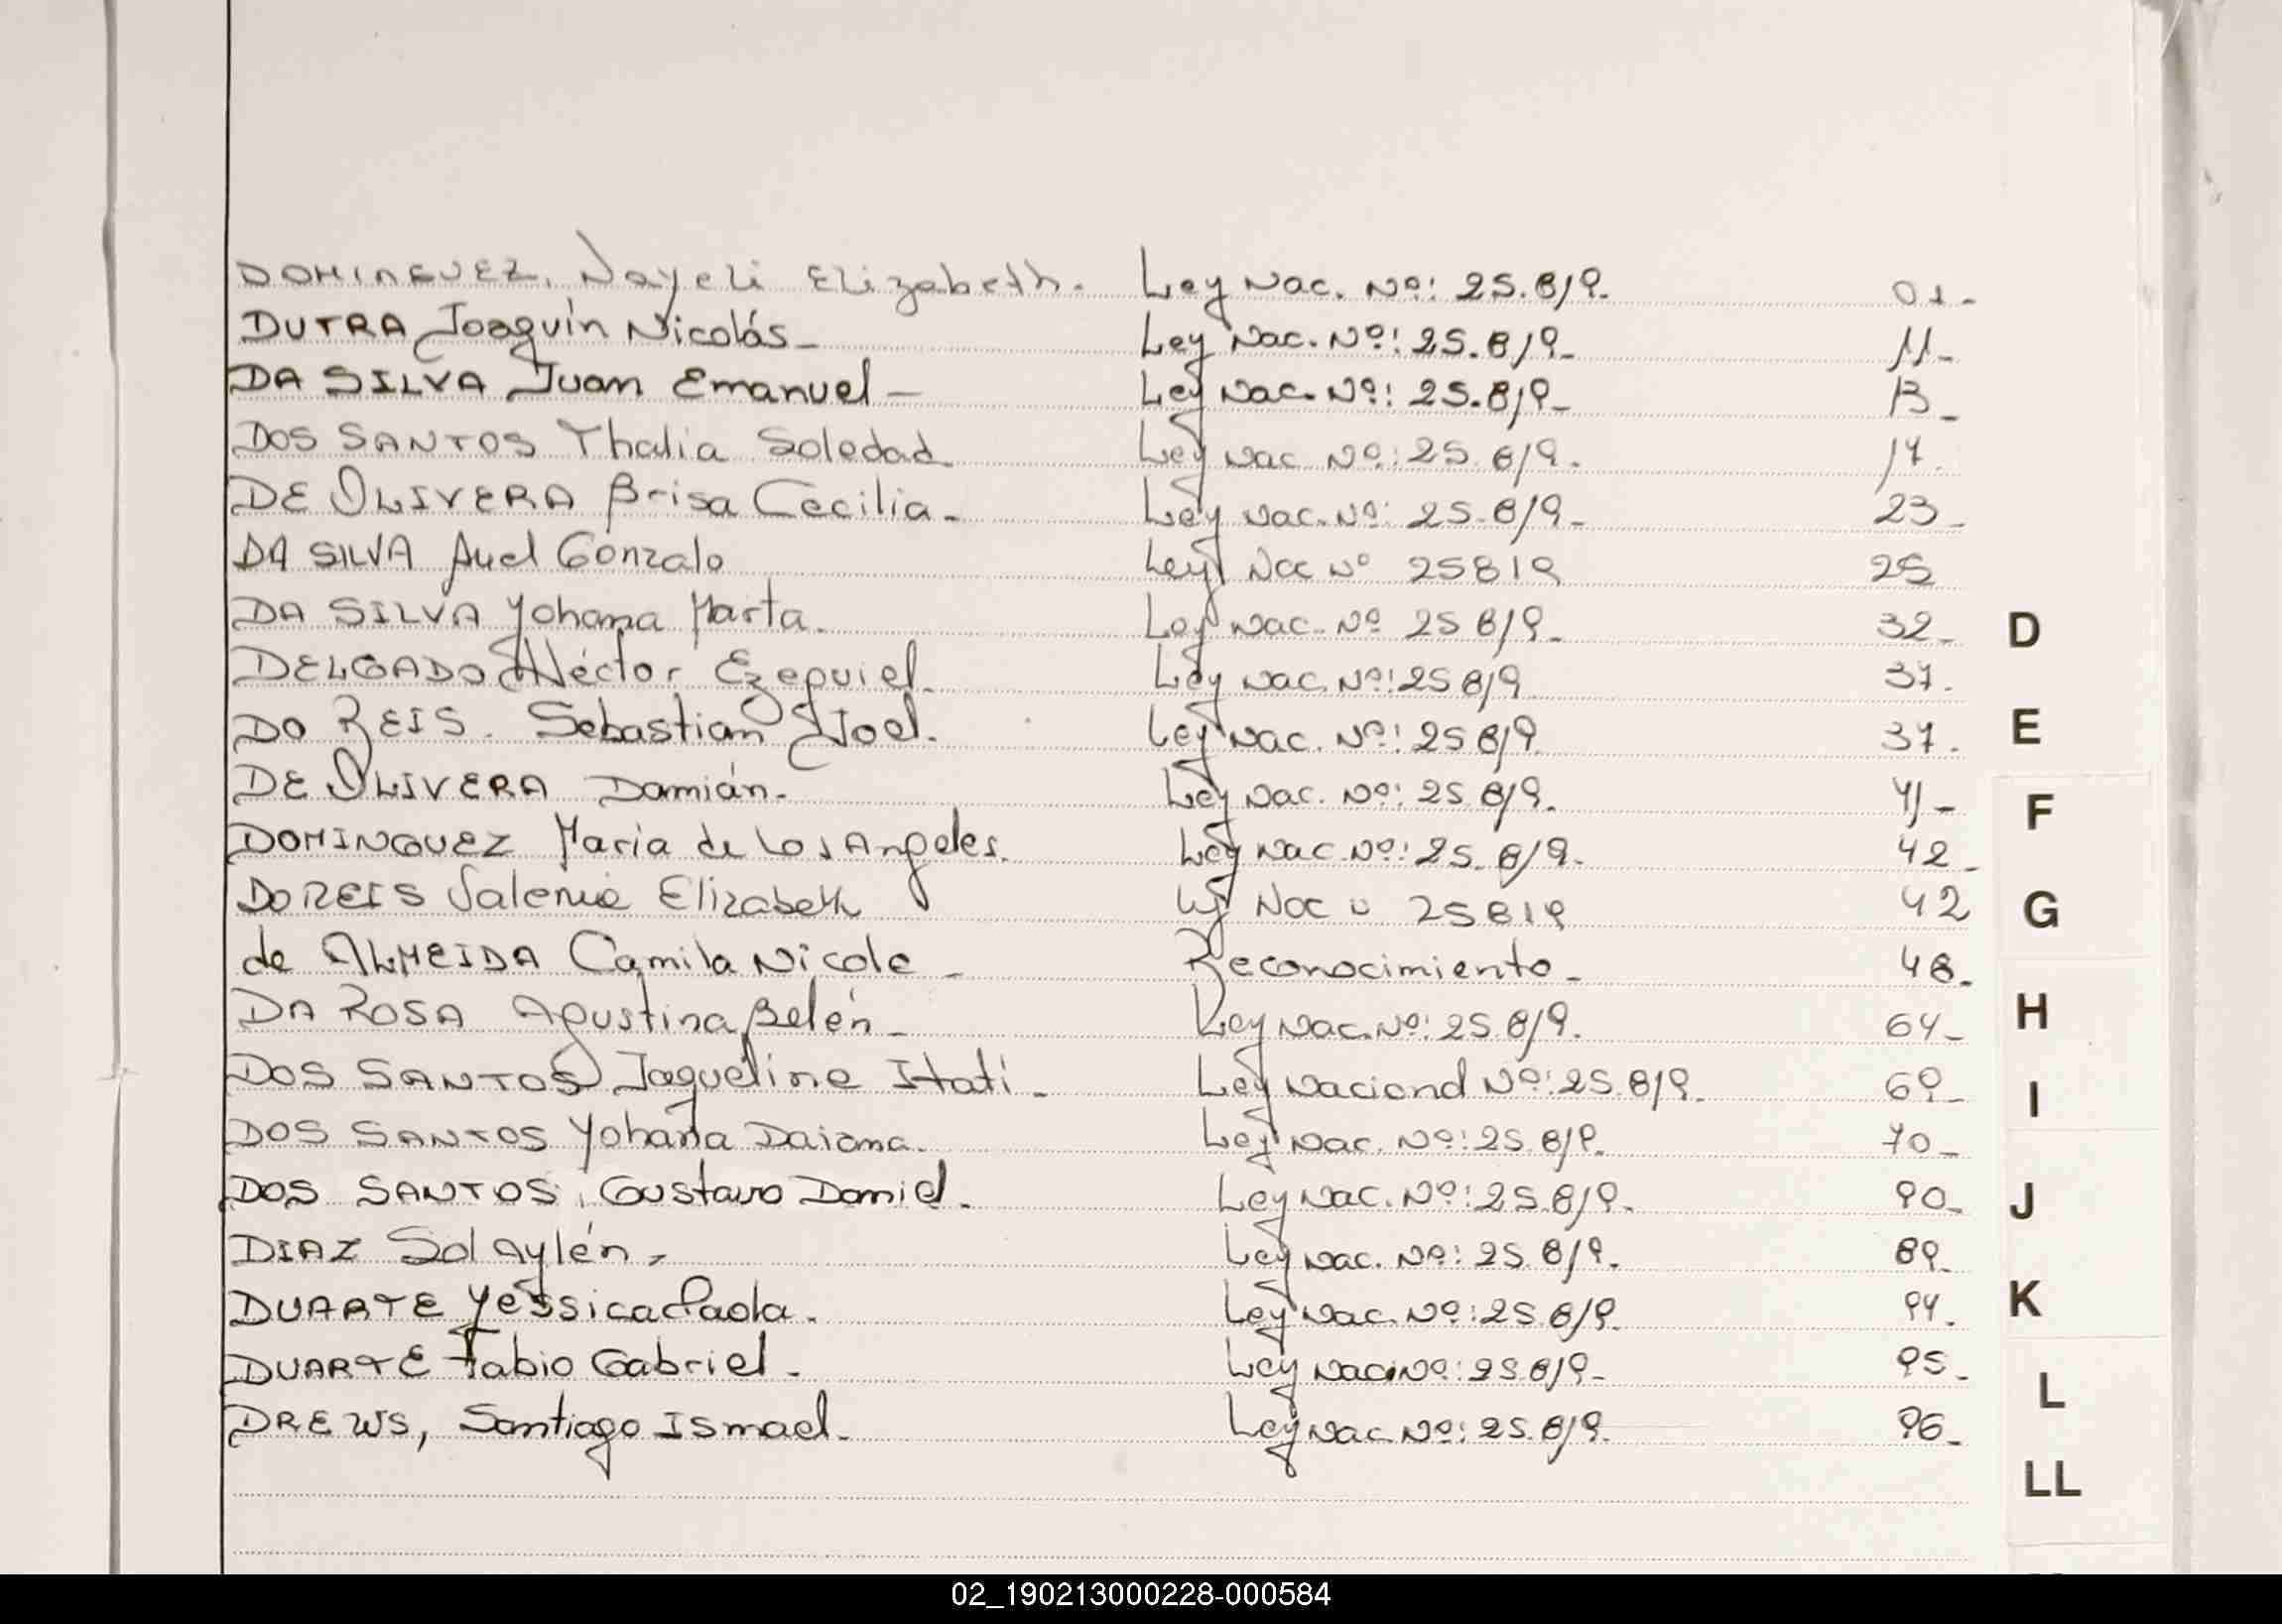 DOMINGUEZ, Nayeli Elizabeth. Ley Nac. Nº: 25.819. 01-
DUTRA Joaquín Nicolás- Ley Nac. Nº: 25.819- 11-
DA SILVA Juan Emanuel- Ley Nac. Nº: 25.819- 13-
DOS SANTOS Thalia Soledad Ley Nac Nº: 25.819. 17.
DE OLIVERA Brisa Cecilia- Ley Nac. Nº: 25.819- 23-
DA SILVA Gonzalo Ley Nac Nº 25819 25
DA SILVA Yohana Marta. Ley Nac. Nº 25819- 32-
DELGADO Héctor Ezequiel. Ley Nac. Nº: 25819 37.
DO REIS. Sebastian Joel. Ley Nac. Nº: 25819 37.
DE OLIVERA Damián. Ley Nac. Nº: 25.819. 41-
DOMINGUEZ Maria de Los Angeles. Ley Nac. Nº: 25.819. 42-
DO REIS Elizabeth Ley Nac 25819 42
de ALMEIDA Camila Nicole- Reconocimiento- 48.
DA ROSA Agustina Belén- Ley Nac. Nº: 25.819. 64-
DOS SANTOS Jaqueline Itatí- Ley Nacional Nº: 25.819. 69-
DOS SANTOS Yohana Daiana. Ley Nac. Nº: 25.819. 70-
DOS SANTOS, Gustavo Daniel. Ley Nac. Nº: 25.819. 90-
DIAZ Sol Aylén- Ley Nac. Nº: 25.819. 89-
DUARTE Yessica Paola. Ley Nac. Nº: 25.819. 94.
DUARTE Fabio Gabriel. Ley Nac. Nº: 25.819- 95-
DREWS, Santiago Ismael. Ley Nac. Nº: 25.819. 96-
D
E
F
G
H
I
J
K
L
LL
02_190213000228-000584